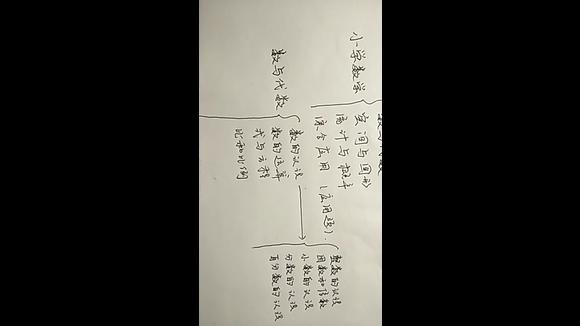 小学数学
数与代数
空间与图形
统计与概率
综合应用(应用题).
数与代数
数的认识
数的运算
式与方程
比和比例
整数的认识
因数和倍数
小数的认识
分数的认识
百分数的认识